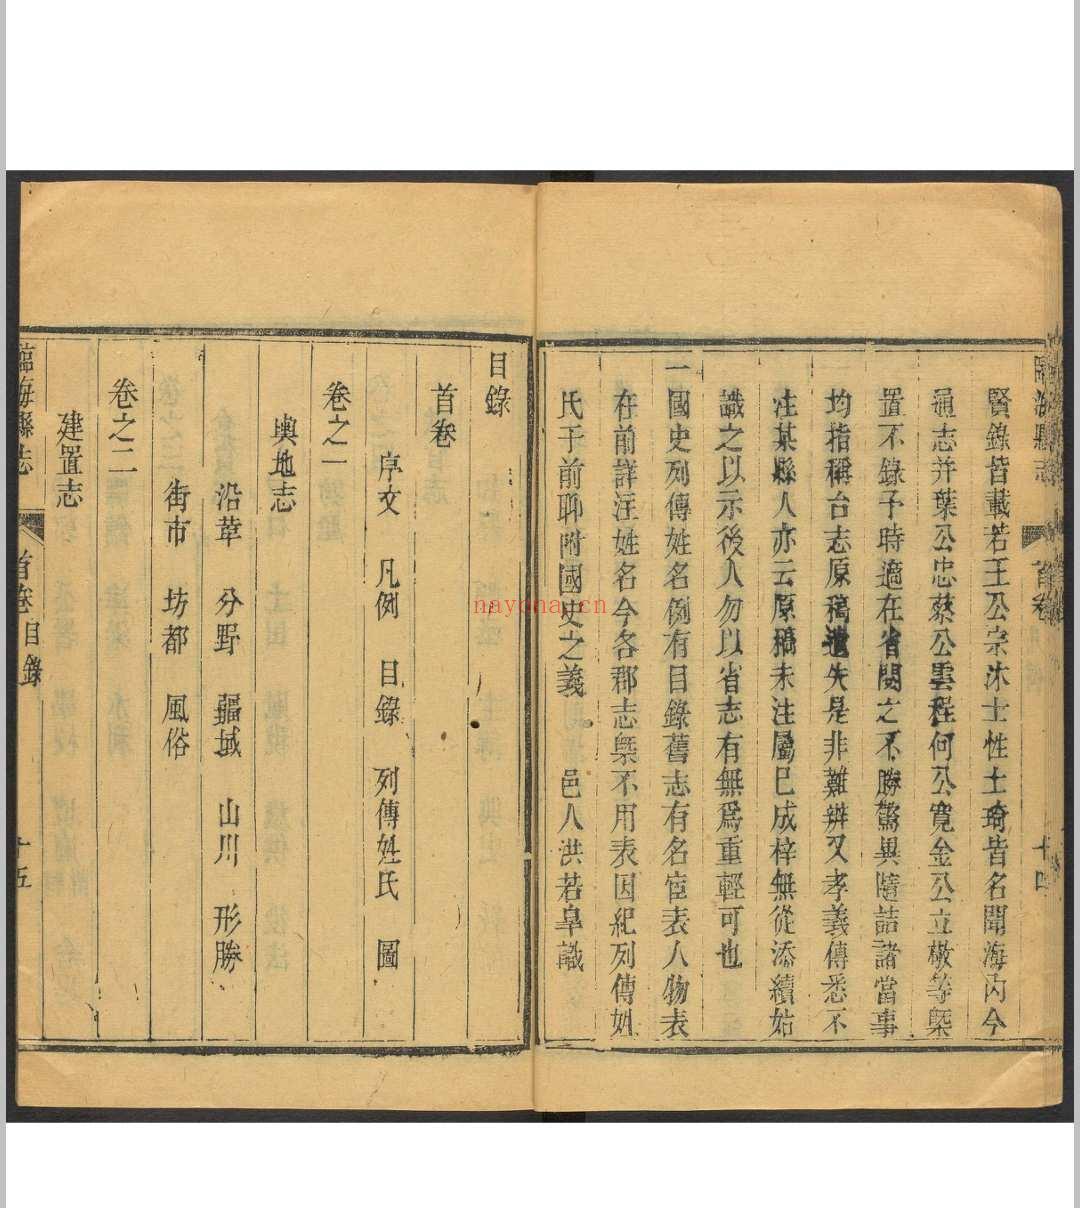 臨海縣志
首卷
十四
賢錄皆載若王公宗沐士性士琦皆名聞海內今
通志并葉公忠蔡公雲程何公寬金公立敬等槩
置不錄予時適在省閱之不勝驚異隨詰諸當事
均指稱台志原稿遺失是非難辨又孝義傳悉不
注某縣人亦云原稿未注屬巳成梓無從添續姑
識之以示後人勿以省志有無爲重輕可也
一國史列傳姓名例有目錄舊志有名宦表人物表
在前詳注姓名今各郡志槩不用表因紀列傳姓
氏于前聊附國史之義 邑人洪若臯識
目錄
首卷
序文 凡例 目錄 列傳姓氏 圖
卷之一
輿地志
沿革 分野 疆域 山川 形勝
街市 坊都 風俗
卷之二
建置志
臨海縣志
首卷 目錄
十五
nayona.cn